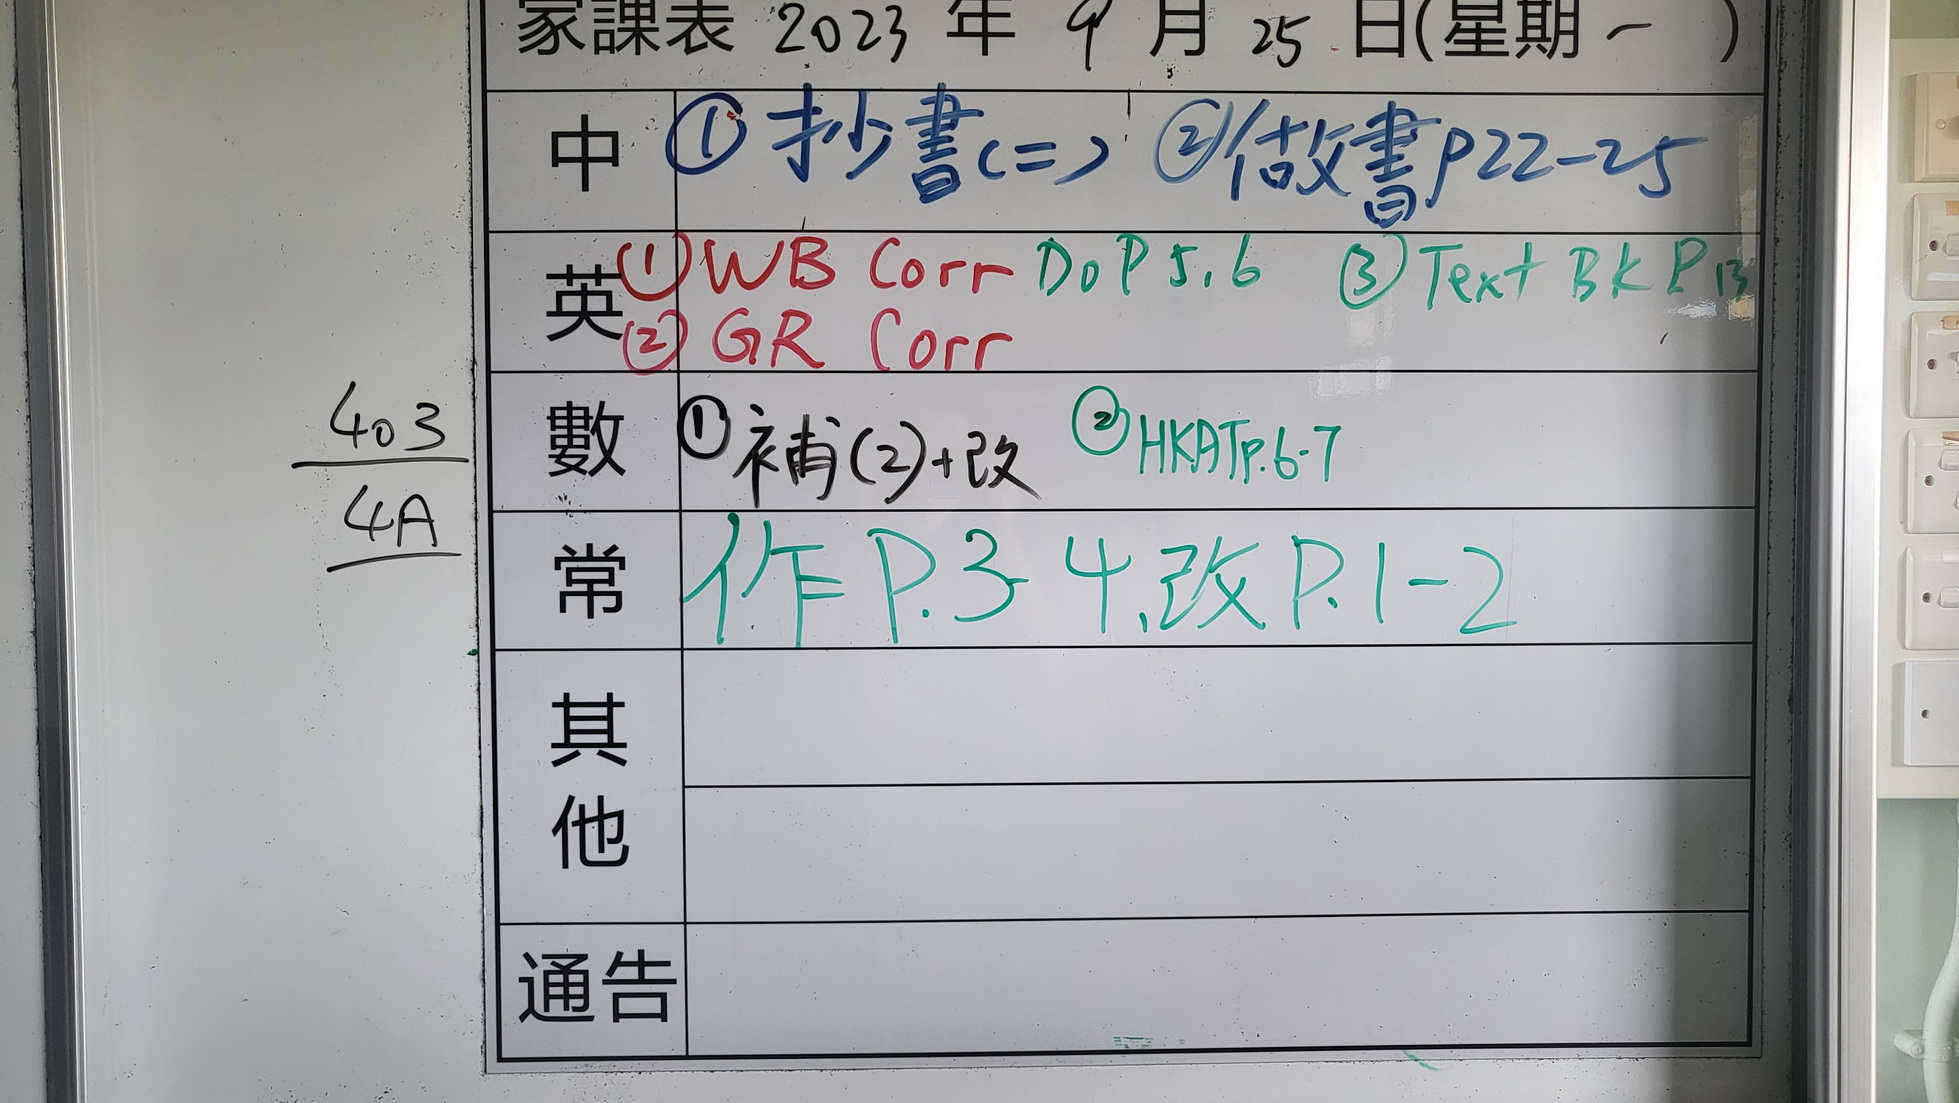 家課表 2023 年 9 月 25 日(星期一 )
中 ① 抄書(二) ② 做書 p22-25
英 ① WB Corr Do P 5,6 ③ Text BK P 13
② GR Corr
數 ① 補(2)+改 ② HKAT p.6-7
常 作 P.3-4,改 P.1-2
其他
通告
403
4A